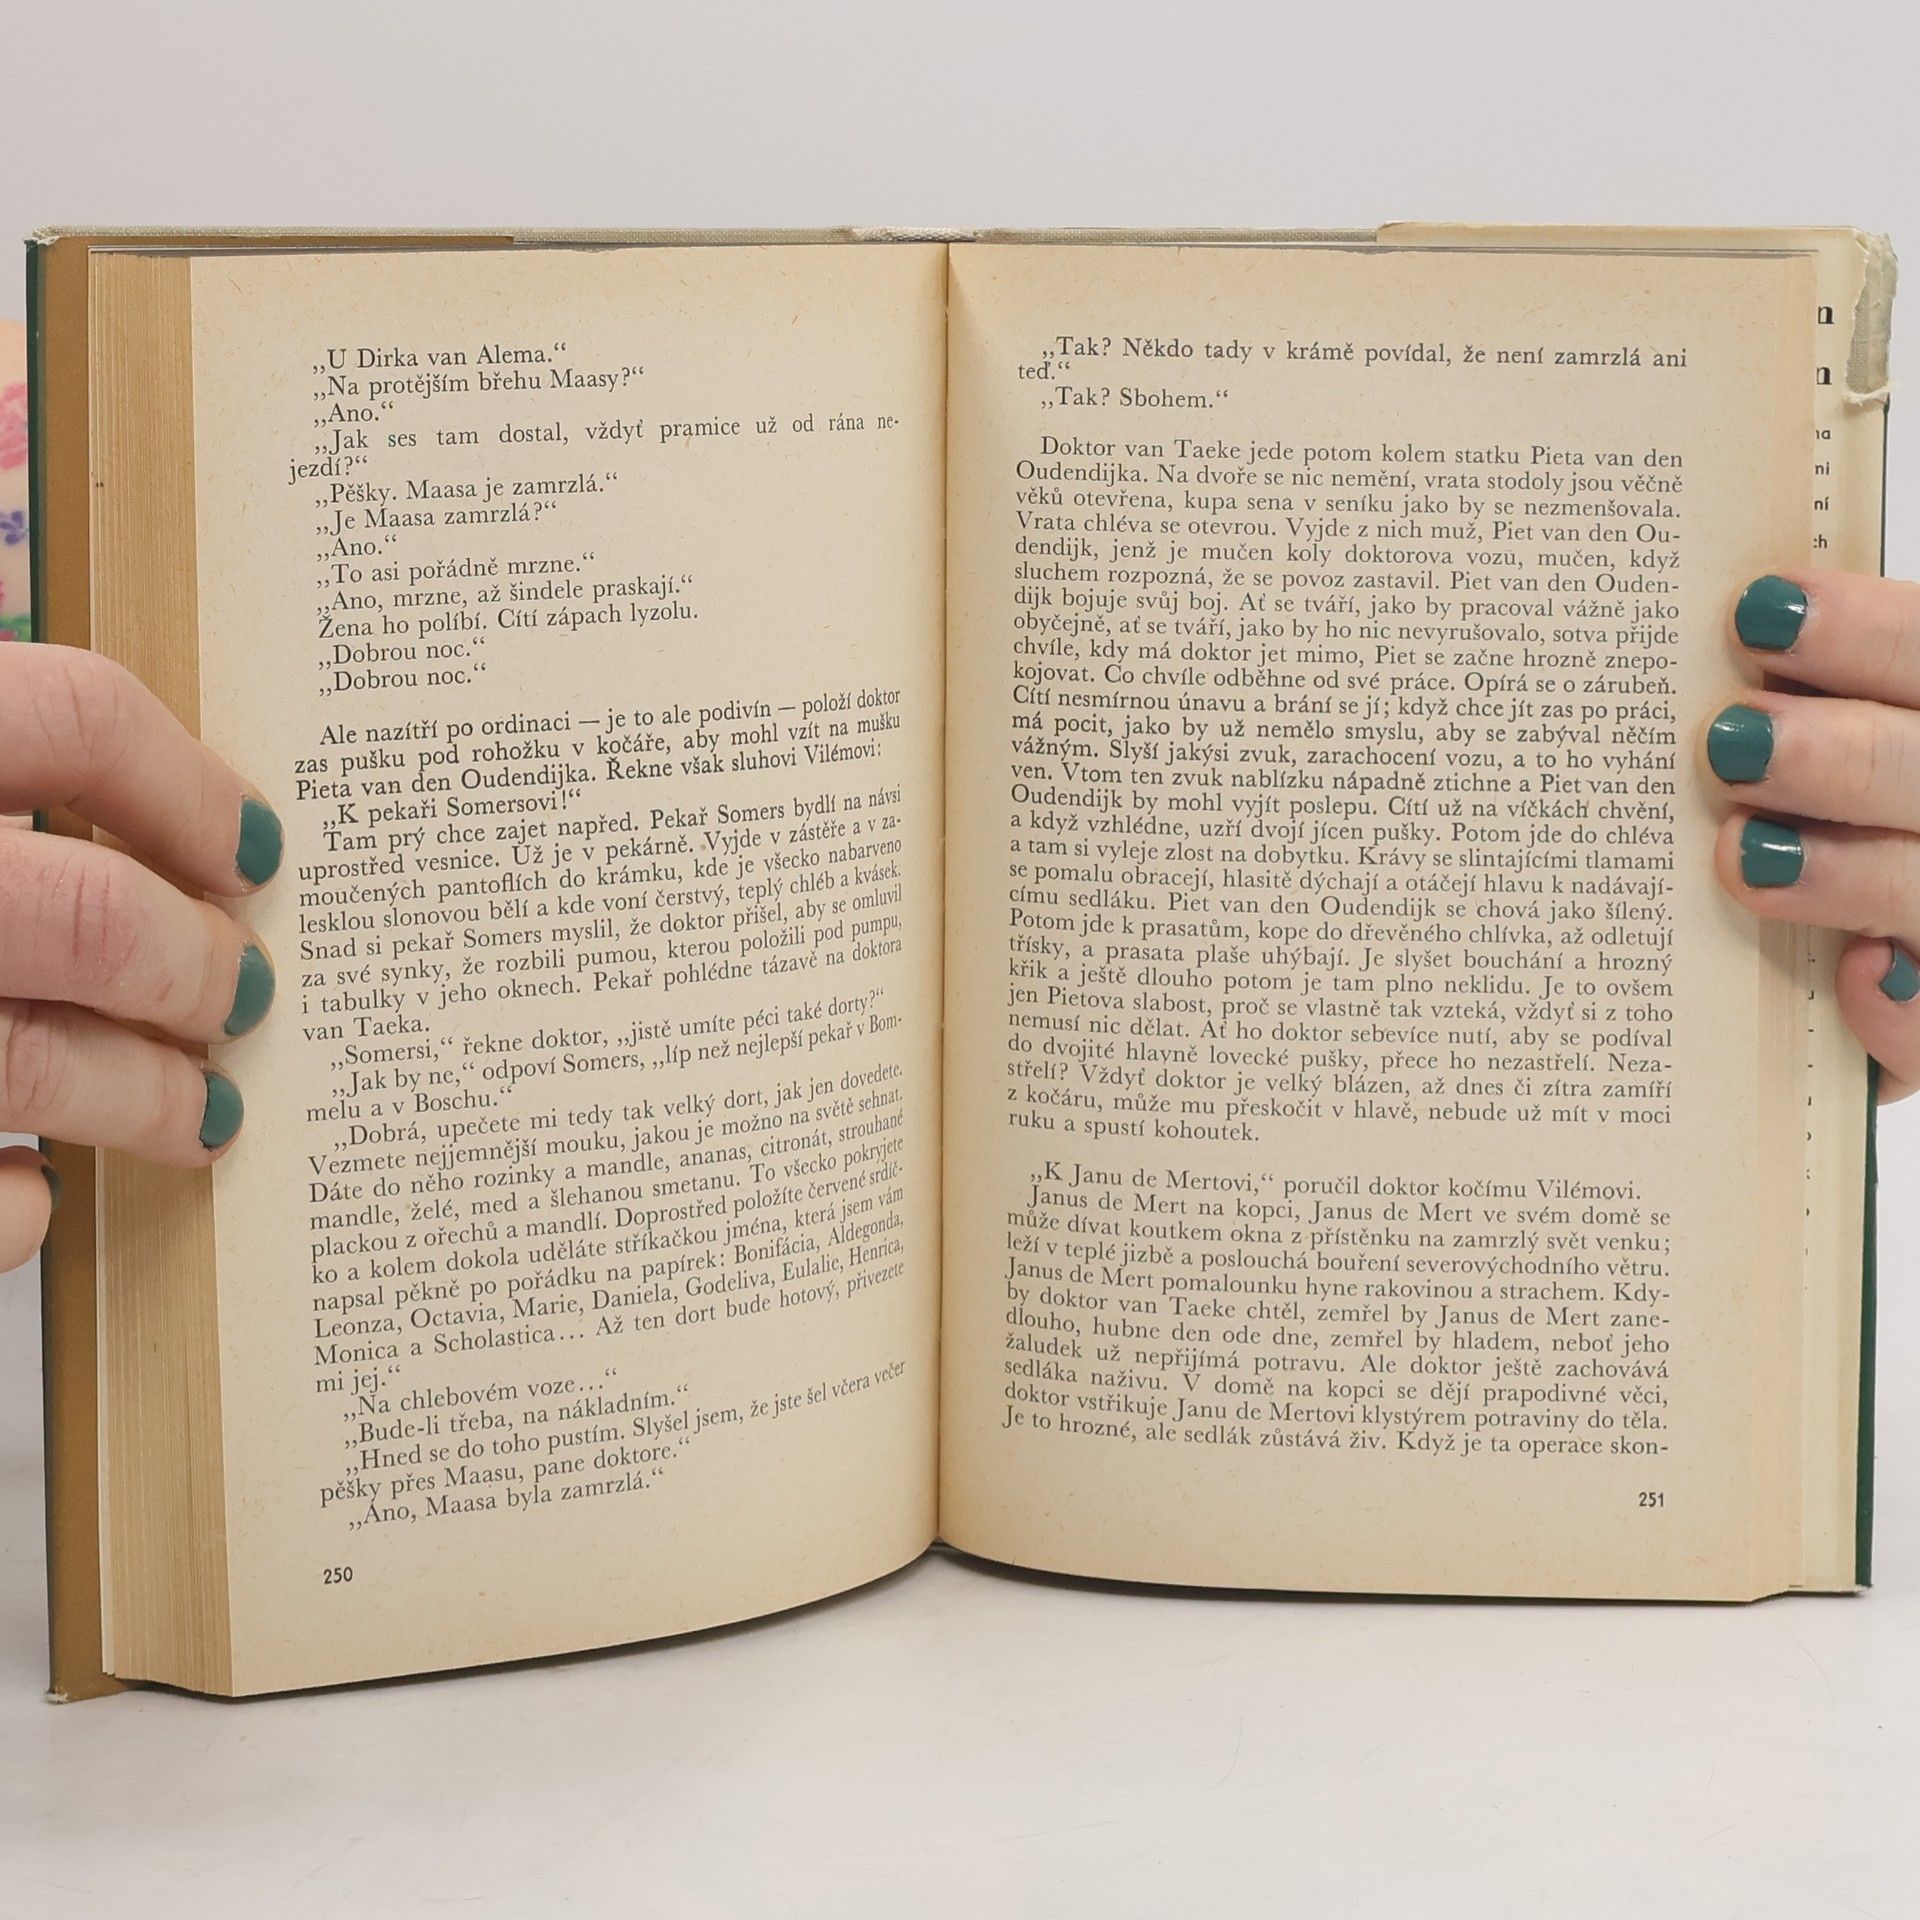 „U Dirka van Alema.“
„Na protějším břehu Maasy?“
„Ano.“
„Jak ses tam dostal, vždyť pramice už od rána ne-
jezdí?“
„Pěšky. Maasa je zamrzlá.“
„Je Maasa zamrzlá?“
„Ano.“
„To asi pořádně mrzne.“
„Ano, mrzne, až šindele praskají.“
Žena ho políbí. Cítí zápach lyzolu.
„Dobrou noc.“
„Dobrou noc.“
Ale nazítří po ordinaci — je to ale podivín — položí doktor
zas pušku pod rohožku v kočáře, aby mohl vzít na mušku
Pieta van den Oudendijka. Řekne však sluhovi Vilémovi:
„K pekaři Somersovi!“
Tam prý chce zajet napřed. Pekař Somers bydlí na návsi
uprostřed vesnice. Už je v pekárně. Vyjde v zástěře a v za-
moučených pantoflích do krámku, kde je všecko nabarveno
lesklou slonovou bělí a kde voní čerstvý, teplý chléb a kvásek.
Snad si pekař Somers myslil, že doktor přišel, aby se omluvil
za své synky, že rozbili pumou, kterou položili pod pumpu,
i tabulky v jeho oknech. Pekař pohlédne tázavě na doktora
van Taeka.
„Somersi,“ řekne doktor, „jistě umíte péci také dorty?“
„Jak by ne,“ odpoví Somers, „líp než nejlepší pekař v Bom-
melu a v Boschu.“
„Dobrá, upečete mi tedy tak velký dort, jak jen dovedete.
Vezmete nejjemnější mouku, jakou je možno na světě sehnat.
Dáte do něho rozinky a mandle, ananas, citronát, strouhané
mandle, želé, med a šlehanou smetanu. To všecko pokryjete
plackou z ořechů a mandlí. Doprostřed položíte červené srdíč-
ko a kolem dokola uděláte stříkačkou jména, která jsem vám
napsal pěkně po pořádku na papírek: Bonifácia, Aldegonda,
Leonza, Octavia, Marie, Daniela, Godeliva, Eulalie, Henrica,
Monica a Scholastica... Až ten dort bude hotový, přivezete
mi jej.“
„Na chlebovém voze...“
„Bude-li třeba, na nákladním.“
„Hned se do toho pustím. Slyšel jsem, že jste šel včera večer
pěšky přes Maasu, pane doktore.“
„Ano, Maasa byla zamrzlá.“
250
„Tak? Někdo tady v krámě povídal, že není zamrzlá ani
teď.“
„Tak? Sbohem.“
Doktor van Taeke jede potom kolem statku Pieta van den
Oudendijka. Na dvoře se nic nemění, vrata stodoly jsou věčně
věků otevřena, kupa sena v seníku jako by se nezmenšovala.
Vrata chléva se otevrou. Vyjde z nich muž, Piet van den Ou-
dendijk, jenž je mučen koly doktorova vozu, mučen, když
sluchem rozpozná, že se povoz zastavil. Piet van den Ouden-
dijk bojuje svůj boj. Ať se tváří, jako by pracoval vážně jako
obyčejně, ať se tváří, jako by ho nic nevyrušovalo, sotva přijde
chvíle, kdy má doktor jet mimo, Piet se začne hrozně znepo-
kojovat. Co chvíle odběhne od své práce. Opírá se o zárubeň.
Cítí nesmírnou únavu a brání se jí; když chce jít zas po práci,
má pocit, jako by už nemělo smyslu, aby se zabýval něčím
vážným. Slyší jakýsi zvuk, zarachocení vozu, a to ho vyhání
ven. Vtom ten zvuk nablízku nápadně ztichne a Piet van den
Oudendijk by mohl vyjít poslepu. Cítí už na víčkách chvění,
a když vzhlédne, uzří dvojí jícen pušky. Potom jde do chléva
a tam si vyleje zlost na dobytku. Krávy se slintajícími tlamami
se pomalu obracejí, hlasitě dýchají a otáčejí hlavu k nadávají-
címu sedláku. Piet van den Oudendijk se chová jako šílený.
Potom jde k prasatům, kope do dřevěného chlívka, až odletují
třísky, a prasata plaše uhýbají. Je slyšet bouchání a hrozný
křik a ještě dlouho potom je tam plno neklidu. Je to ovšem
jen Pietova slabost, proč se vlastně tak vzteká, vždyť si z toho
nemusí nic dělat. Ať ho doktor sebevíce nutí, aby se podíval
do dvojité hlavně lovecké pušky, přece ho nezastřelí. Neza-
střelí? Vždyť doktor je velký blázen, až dnes či zítra zamíří
z kočáru, může mu přeskočit v hlavě, nebude už mít v moci
ruku a spustí kohoutek.
„K Janu de Mertovi,“ poručil doktor kočímu Vilémovi.
Janus de Mert na kopci, Janus de Mert ve svém domě se
může dívat koutkem okna z přístěnku na zamrzlý svět venku;
leží v teplé jizbě a poslouchá bouření severovýchodního větru.
Janus de Mert pomalounku hyne rakovinou a strachem. Kdy-
by doktor van Taeke chtěl, zemřel by Janus de Mert zane-
dlouho, hubne den ode dne, zemřel by hladem, neboť jeho
žaludek už nepřijímá potravu. Ale doktor ještě zachovává
sedláka naživu. V domě na kopci se dějí prapodivné věci,
doktor vstřikuje Janu de Mertovi klystýrem potraviny do těla.
Je to hrozné, ale sedlák zůstává živ. Když je ta operace skon-
251